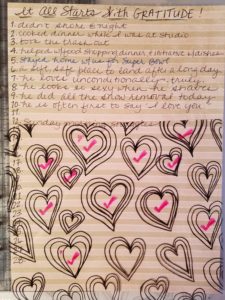 It All Starts With GRATITUDE!
1. didn't snore @ night
2. cooked dinner while I was at studio
3. took the trash out
4. helped w/ food shopping, dinner + dishes
5. Stayed home w/us for Super Bowl
6. a safe place to land after a long day
7. he loves unconditionally + truly.
8. he looks so sexy when he shaves
9. he did all the snow removal today
10. he is often first to say "I love you"
11.
12. Sunday